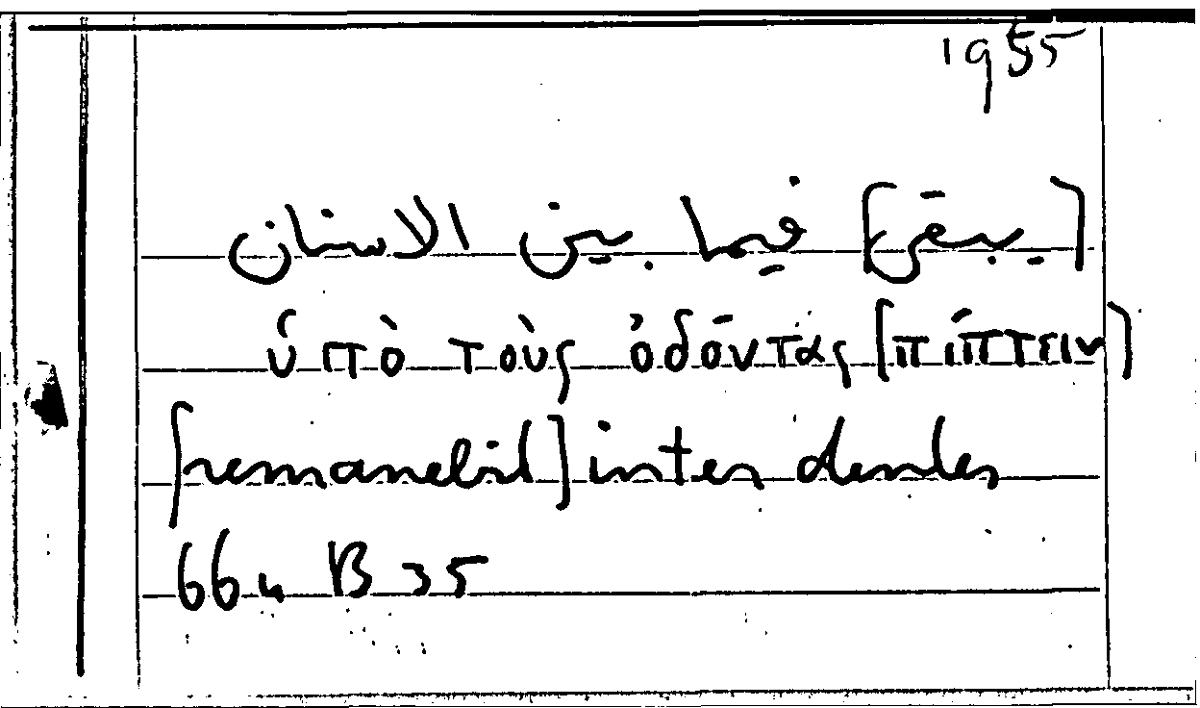 1955
[يبقى] فيما بين الاسنان
ὑπὸ τοὺς ὀδόντας [πίπτειν]
[remanebit] inter dentes
664 B 35